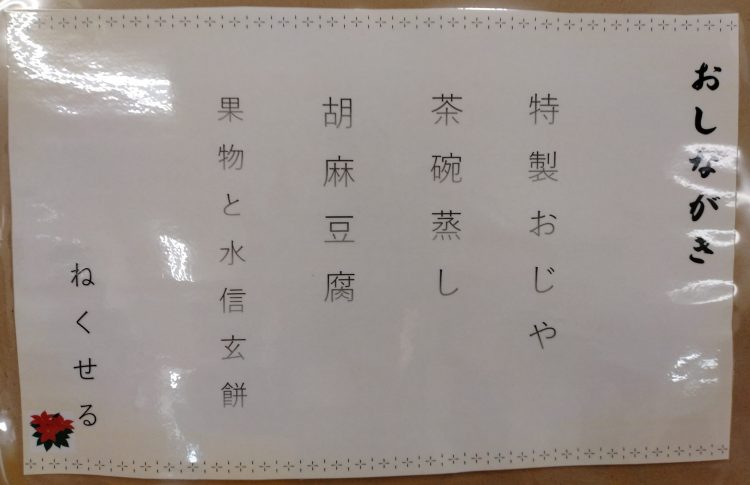 おしながき
特製おじや
茶碗蒸し
胡麻豆腐
果物と水信玄餅
ねくせる